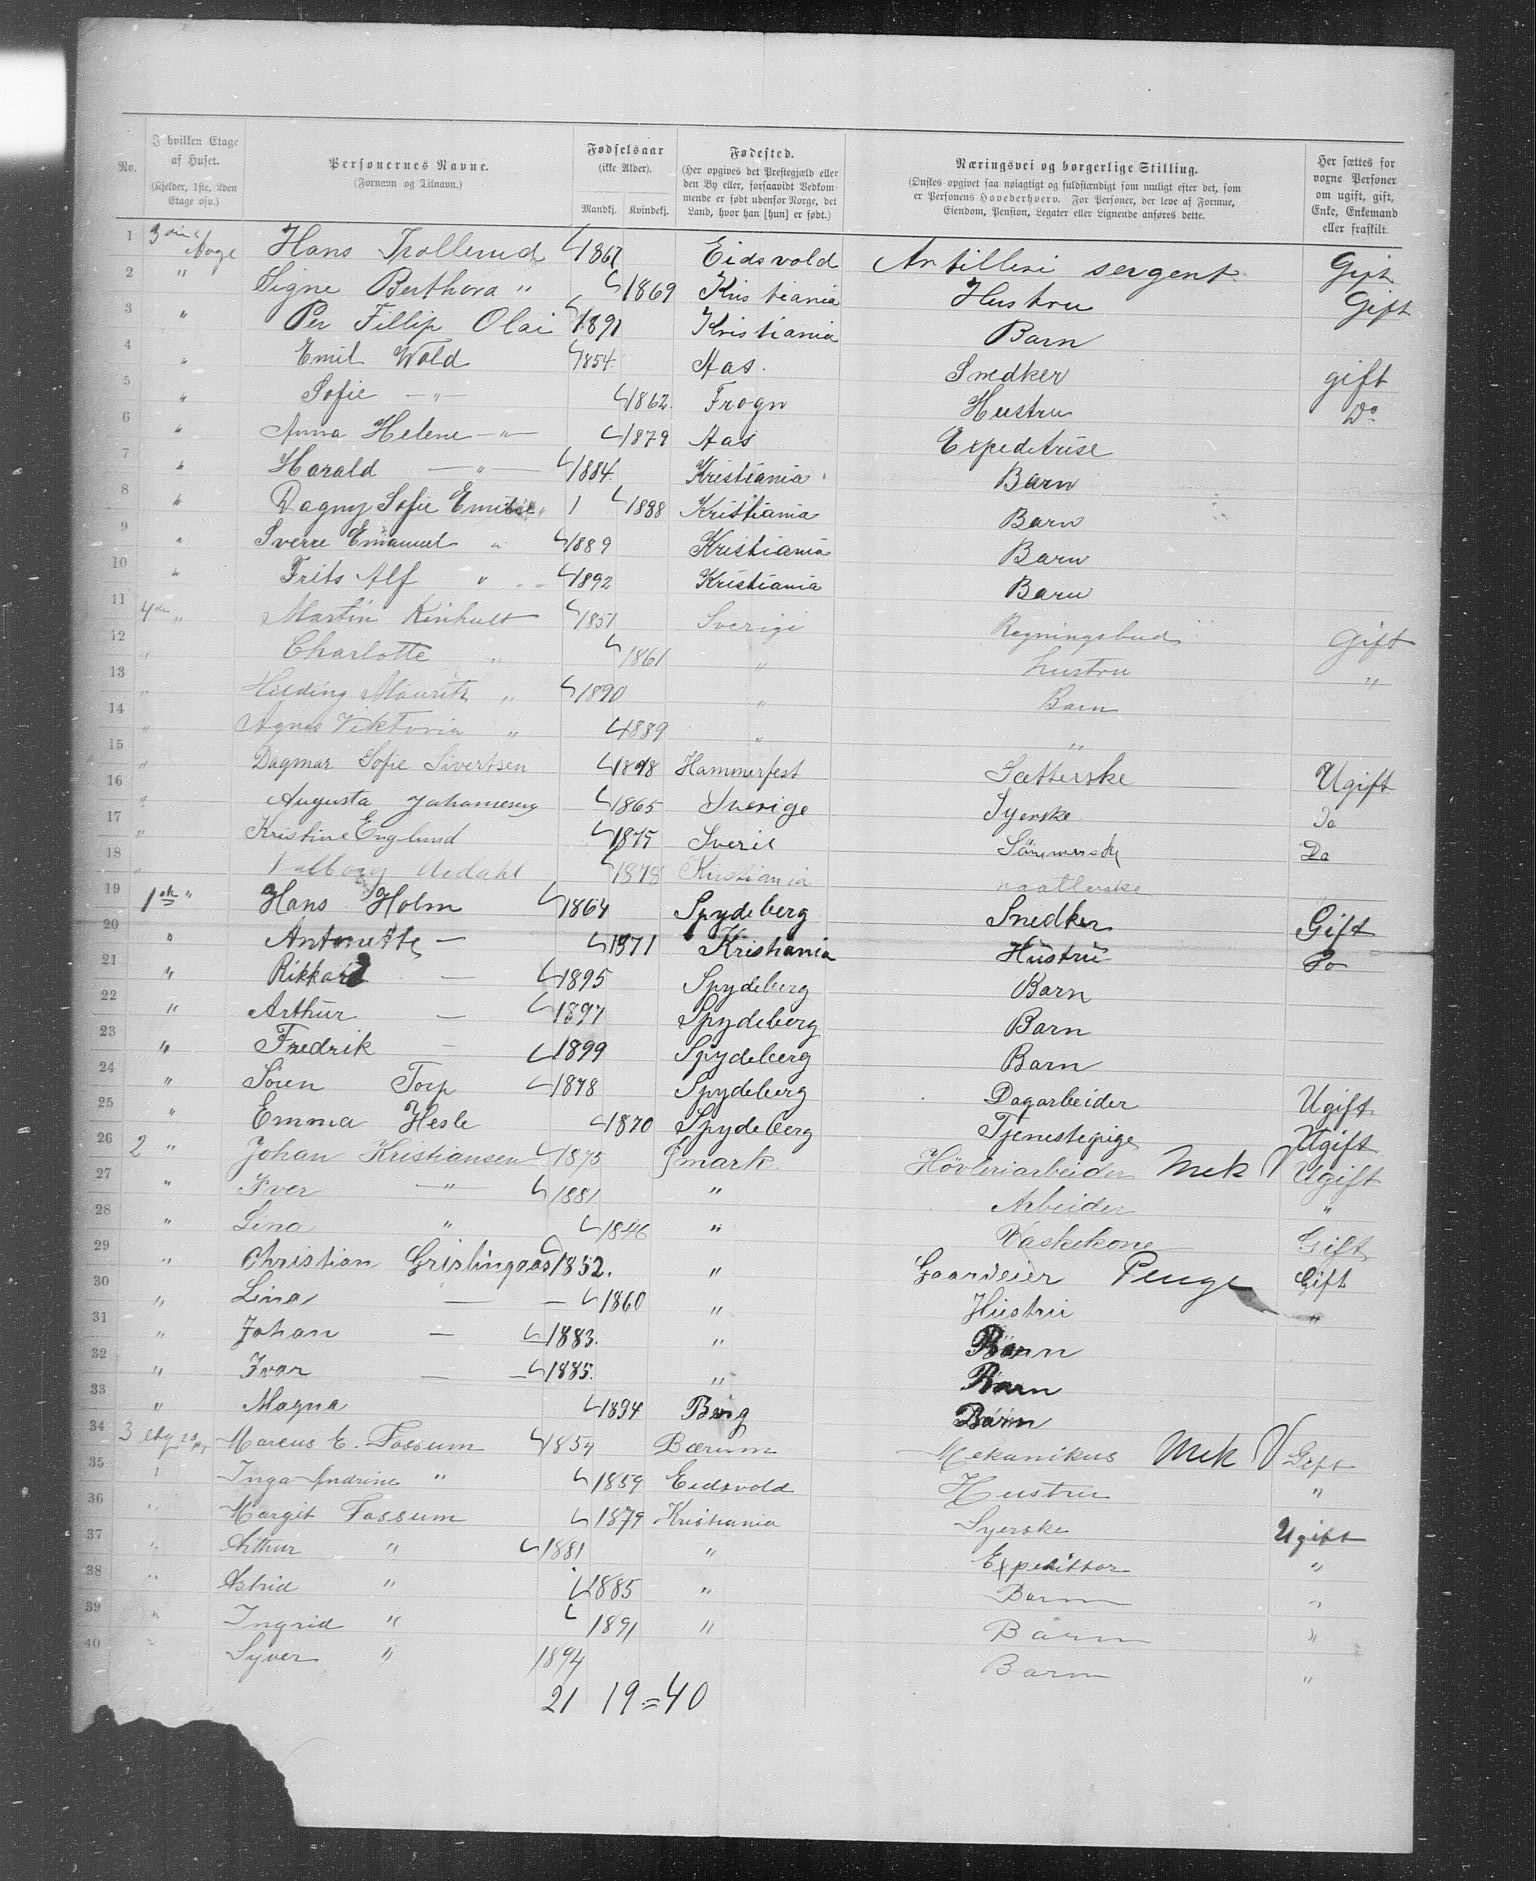 No. | I hvilken Etage af Huset. (Kjelder, 1ste, 2den Etage osv.) | Personernes Navne. (Fornavn og Tilnavn.) | Fødselsaar (ikke Alder). Mandkj. Kvindekj. | Fødested. (Her opgives det Prestegjæld eller den By eller, forsaavidt Vedkommende er født udenfor Norge, det Land, hvor han [hun] er født.) | Næringsvei og borgerlige Stilling. (Ønskes opgivet saa nøiagtigt og fuldstændigt som muligt efter det, som er Personens Hovederhverv. For Personer, der leve af Formue, Eiendom, Pension, Legater eller Lignende anføres dette.) | Her sættes for voxne Personer om ugift, gift, Enke, Enkemand eller fraskilt.
1 Hans Trollerud 1861 Eidsvold Artilleri sergent Gift
2 " Signe Berthora " 1869 Kristiania Hustru Gift
3 " Per Fillip Olai 1891 Kristiania Barn
4 " Emil Wold 1854 Aas. Snedker gift
5 " Sofie — " — 1862 Frogn Hustru Do
6 " Anna Helene — " — 1879 Aas Expeditrise
7 " Harald — " — 1884 Kristiania Barn
8 " Dagny Sofie Emilie " 1 1888 Kristiania Barn
9 " Sverre Emanuel " 1889 Kristiania Barn
10 " Frits Alf " 1892 Kristiania Barn
11 4de " Martin 1851 Sverige Regningsbud Gift
12 " Charlotte " 1861 " hustru "
13 " Hilding Mauritz " 1890 " Barn
14 " Agnes Viktoria " 1889 " "
15 " Dagmar Sofie Sivertsen 1878 Hammerfest Sætterske Ugift
16 " Augusta 1865 Sverige Syerske Do
17 " Kristine Englund 1875 Do
18 " Valborg 1878 Kristiania
19 1ste " Hans Holm 1864 Spydeberg Snedker Gift
20 " Antonette — 1871 Kristiania Hustru Do
21 " Rikkard — 1895 Spydeberg Barn
22 " Arthur — 1897 Spydeberg Barn
23 " Fredrik — 1899 Spydeberg Barn
24 " Sören Torp 1878 Spydeberg Dagarbeider Ugift
25 " Emma Hesle 1870 Spydeberg Tjenestepige Ugift
26 2 " Johan Kristiansen 1875 Høvleriarbeider Mek V Ugift
27 " Iver — " 1881 " Arbeider "
28 " Lina " 1846 " Vaskekone Gift
29 " Christian 1852. " Gaardeier Penge Gift
30 " Lina — — 1860 " Hustru "
31 " Johan — 1883. " Barn
32 " Ivar — — 1885. " Barn
33 " Magna 1894 Berg Barn
34 3 Marcus E. Fossum 1854 Bærum Mekanikus Mek V Gift
35 Inga Andrine " 1859 Eidsvold Hustru "
36 " Margit Fossum 1879 Kristiania Syerske Ugift
37 " Arthur " 1881 " Expeditör "
38 " Astrid " 1885 " Barn "
39 " Ingrid " 1891 " Barn "
40 " Syver " 1894 Barn "
21 19 = 40